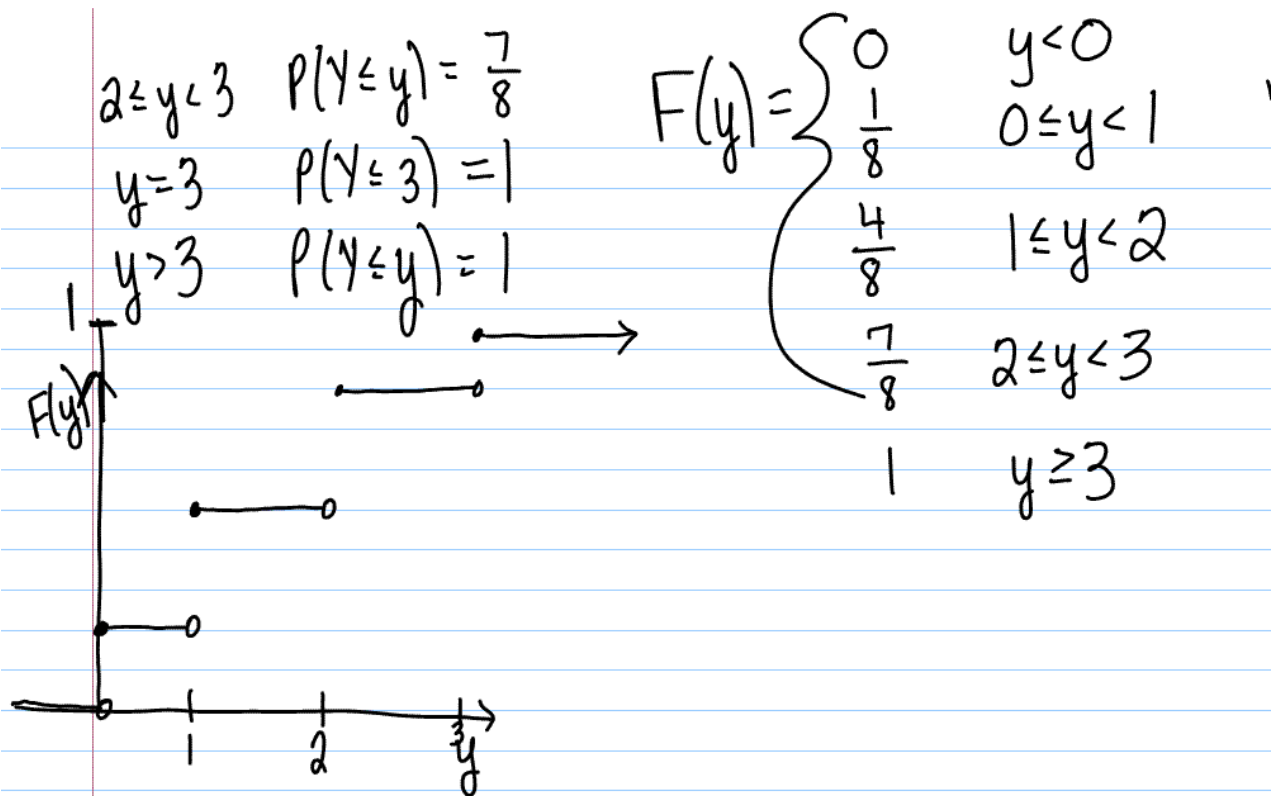 2≤y<3 P(Y≤y) = 7/8
y=3 P(Y≤3) = 1
y>3 P(Y≤y) = 1
F(y) = { 0 y<0
1/8 0≤y<1
4/8 1≤y<2
7/8 2≤y<3
1 y≥3
1
F(y)
1 2 3
y